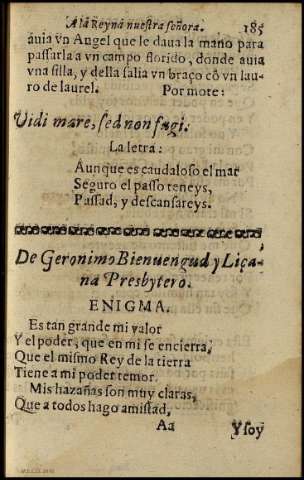 A la Reyna nuestra señora. 185
auia vn Angel que le daua la mano para
passarla a vn campo florido, donde auia
vna silla, y della salia vn braço cõ vn lau-
ro de laurel. Por mote:
Vidi mare, sed non fugi.
La letra:
Aunque es caudaloso el mar
Seguro el passo teneys,
Passad, y descansareys.
De Geronimo Bienuengud y Liça-
na Presbytero.
ENIGMA.
Es tan grande mi valor
Y el poder, que en mi se encierra,
Que el mismo Rey de la tierra
Tiene a mi poder temor.
Mis hazañas son muy claras,
Que a todos hago amistad,
Aa Y soy